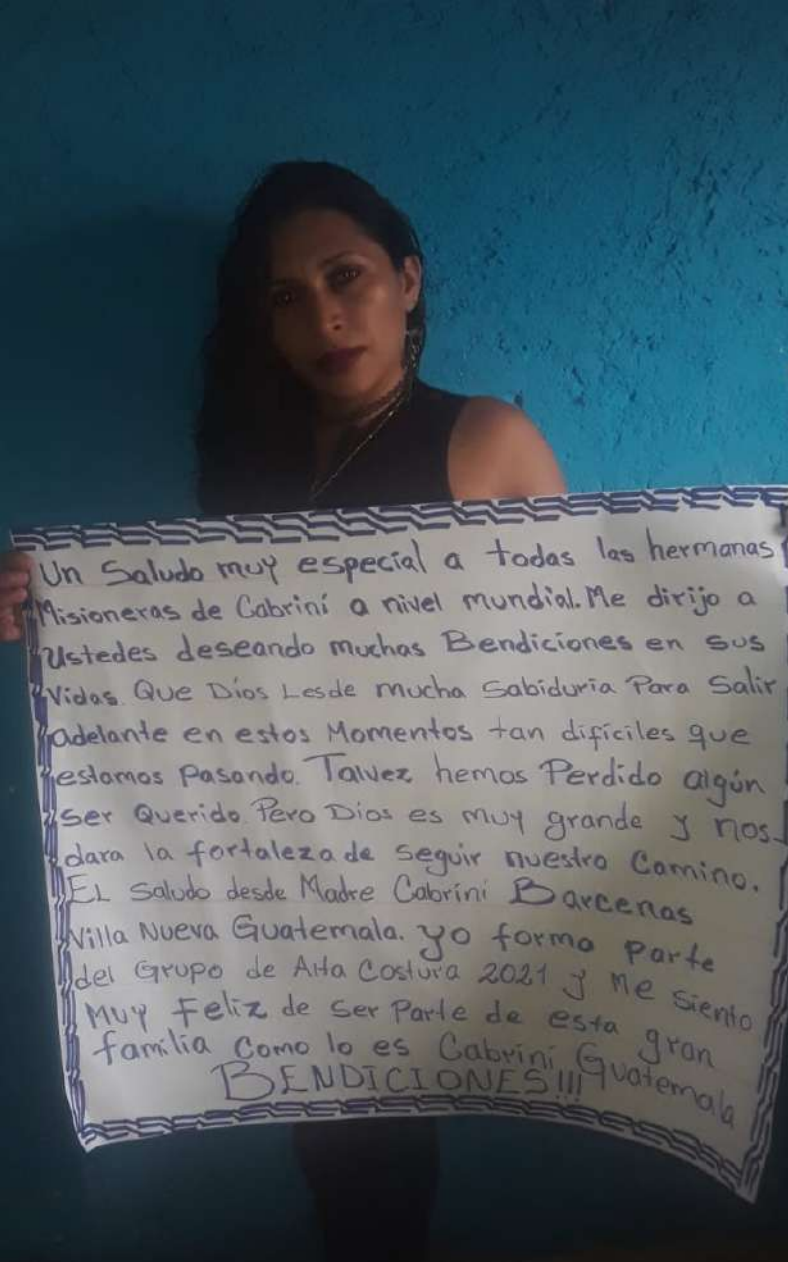 Un Saludo muy especial a todas las hermanas
Misioneras de Cabrini a nivel mundial. Me dirijo a
Ustedes deseando muchas Bendiciones en sus
Vidas. Que Dios Lesde mucha Sabiduria Para Salir
adelante en estos Momentos tan difíciles que
estamos Pasando. Talvez hemos Perdido algún
ser Querido. Pero Dios es muy grande y nos
dara la fortaleza de seguir nuestro Camino.
EL saludo desde Madre Cabrini Barcenas
Villa Nueva Guatemala. yo formo parte
del Grupo de Alta Costura 2021 y Me siento
Muy Feliz de ser Parte de esta gran
familia Como lo es Cabrini Guatemala
BENDICIONES!!!